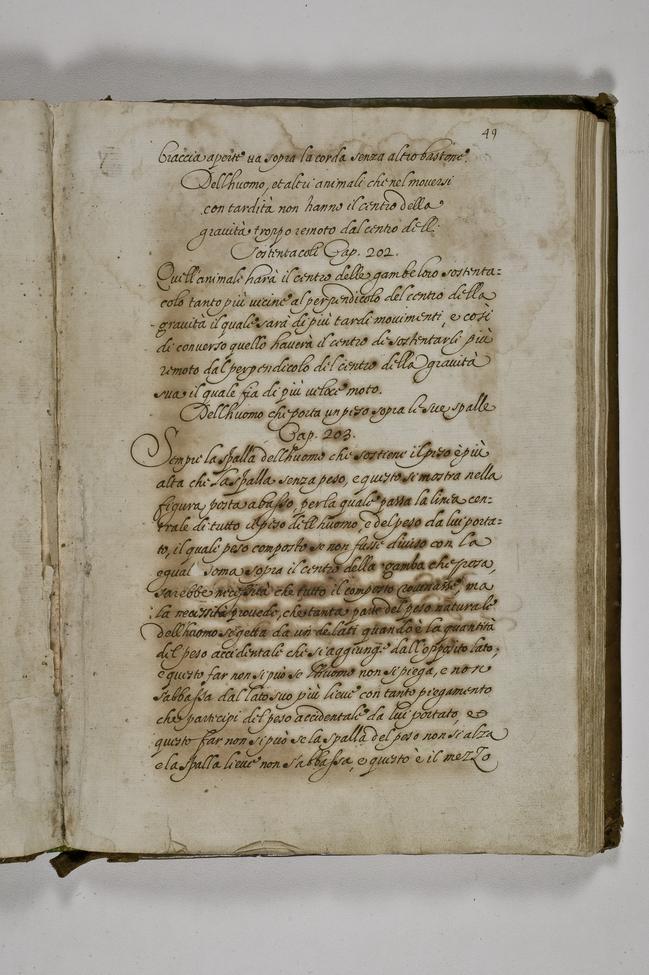 49
braccia aperte ua sopra la corda senza altro bastone.
Dell'huomo, et altri animali che nel mouersi
con tardità non hanno il centro della
grauità troppo remoto dal centro dell:
sostentacoli Cap. 202.
Quell'animale harà il centro delle gambe loro sostenta=
colo tanto più uicine al perpendicolo del centro della
grauità il quale sarà di più tardi mouimenti, e così
di conuerso quello hauerà il centro di sostentarli più
remoto dal perpendicolo del centro della grauità
sua il quale fia di più ueloce moto.
Dell'huomo che porta un peso sopra le sue spalle
Cap. 203.
Sempre la spalla dell'huomo che sostiene il peso è più
alta che la spalla senza peso, e questo si mostra nella
figura posta a basso, per la quale passa la linea cen=
trale di tutto il peso dell'huomo, e del peso da lui porta=
to, il quale peso composto se non fusse diuiso con la
equal soma sopra il centro della gamba che posa,
sarebbe necessità che tutto il composto rouinasse, ma
la necessità prouede, che tanta parte del peso naturale
dell'huomo si getta da un de lati quando è la quantità
del peso accidentale che si aggiunge dall'opposito lato,
e questo far non si può se l'huomo non si piega, e non
s'abbassa dal lato suo più lieue con tanto piegamento
che participi del peso accidentale da lui portato, e
questo far non si può se la spalla del peso non si alza
e la spalla lieue non s'abbassa, e questo è il mezzo